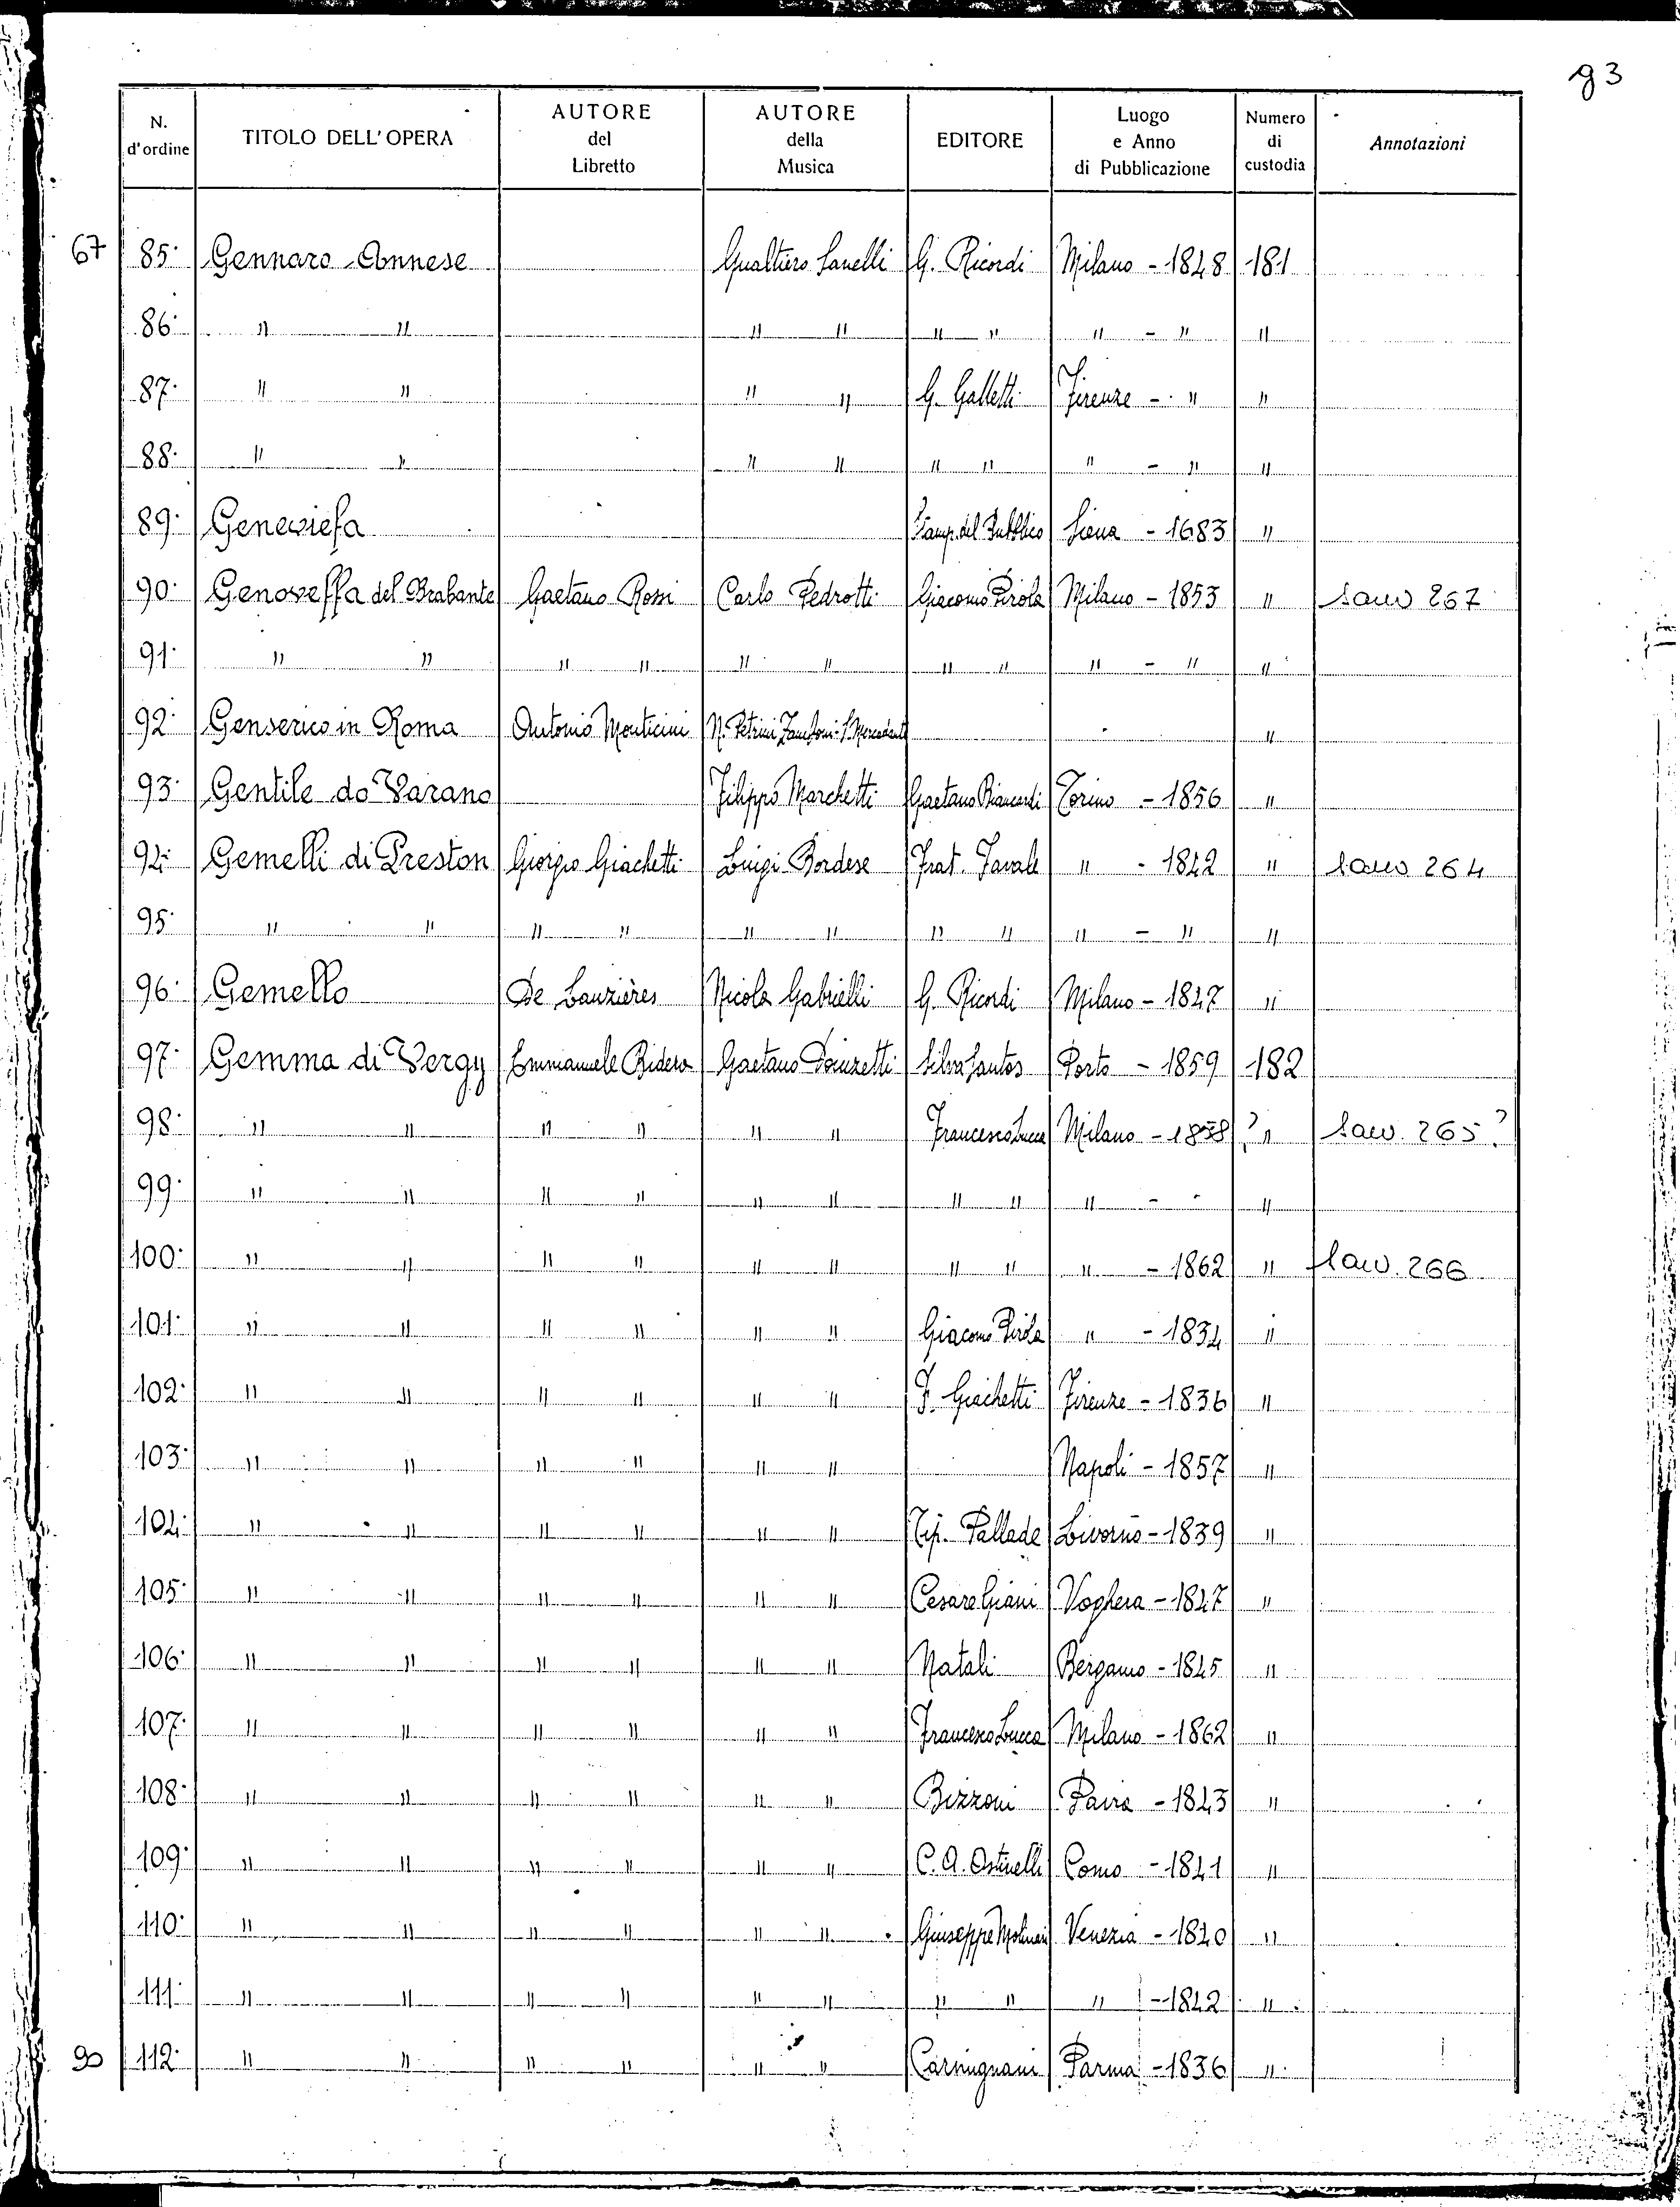 93
N. d'ordine | TITOLO DELL' OPERA | AUTORE del Libretto | AUTORE della Musica | EDITORE | Luogo e Anno di Pubblicazione | Numero di custodia | Annotazioni
67 85· Gennaro Annese | Gualtiero Sanelli | G. Ricordi | Milano - 1848 | 181
86· " " | " " | " " | " - " | "
87· " " | " " | G. Galletti | Firenze - " | "
88· " " | " " | " " | " - " | "
89· Geneviefa | Stamp. del Pubblico | Siena - 1683 | "
90· Genoveffa del Brabante | Gaetano Rossi | Carlo Pedrotti | Giacomo Pirola | Milano - 1853 | " | 267
91· " " | " " | " " | " " | " - " | "
92· Genserico in Roma | Antonio Monticini | N. Petrini Zamboni - S. Mercadante | "
93· Gentile da Varano | Filippo Marchetti | Gaetano | Torino - 1856 | "
94· Gemelli di Preston | Giorgio Giachetti | Luigi Bordese | Frat. Favale | " - 1842 | " | 264
95· " " | " " | " " | " " | " - " | "
96· Gemello | De Lauzières | Nicola Gabrielli | G. Ricordi | Milano - 1847 | "
97· Gemma di Vergy | Emmanuele Bidera | Gaetano Donizetti | Silva Santos | Porto - 1859 | 182
98· " " | " " | " " | Francesco Lucca | Milano - 1858 | ? " | 265?
99· " " | " " | " " | " " | " - | "
100· " " | " " | " " | " " | " - 1862 | " | 266
101· " " | " " | " " | Giacomo Pirola | " - 1834 | "
102· " " | " " | " " | F. Giachetti | Firenze - 1836 | "
103· " " | " " | " " | Napoli - 1857 | "
104· " " | " " | " " | Tip. Pallade | Livorno - 1839 | "
105· " " | " " | " " | Cesare Giani | Voghera - 1847 | "
106· " " | " " | " " | Natali | Bergamo - 1845 | "
107· " " | " " | " " | Francesco Lucca | Milano - 1862 | "
108· " " | " " | " " | Bizzoni | Pavia - 1843 | "
109· " " | " " | " " | C. A. Ostinelli | Como - 1841 | "
110· " " | " " | " " | Giuseppe Molinari | Venezia - 1840 | "
111· " " | " " | " " | " " | " - 1842 | "
90 112· " " | " " | " " | Carmignani | Parma - 1836 | "